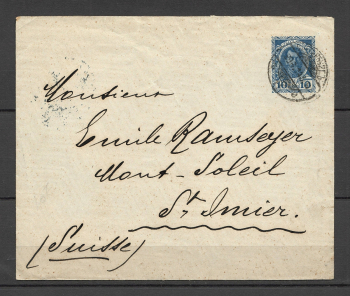 10 10
Monsieur
Emile Ramseyer
Mont-Soleil
St. Imier.
(Suisse)